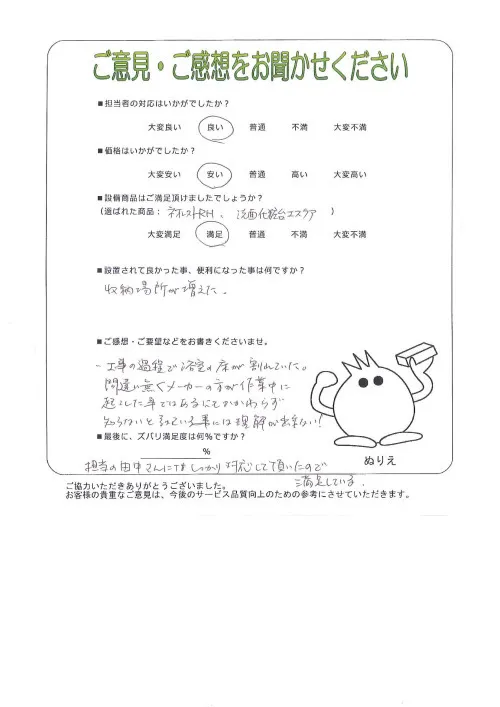 ご意見・ご感想をお聞かせください
■担当者の対応はいかがでしたか？
大変良い　良い　普通　不満　大変不満
■価格はいかがでしたか？
大変安い　安い　普通　高い　大変高い
■設備商品はご満足頂けましたでしょうか？
（選ばれた商品：ネオレストRH、洗面化粧台エスクア　）
大変満足　満足　普通　不満　大変不満
■設置されて良かった事、便利になった事は何ですか？
収納場所が増えた。
■ご感想・ご要望などをお書きくださいませ。
工事の過程で浴室の床が割れていた。
間違い無くメーカーの方が作業中に
起こした事ではあるにもかかわらず
知らないと言っている事には理解が出来ない！
■最後に、ズバリ満足度は何％ですか？
％
担当の田中さんにはしっかり対応して頂いたので
満足しています。
ぬりえ
ご協力いただきありがとうございました。
お客様の貴重なご意見は、今後のサービス品質向上のための参考にさせていただきます。